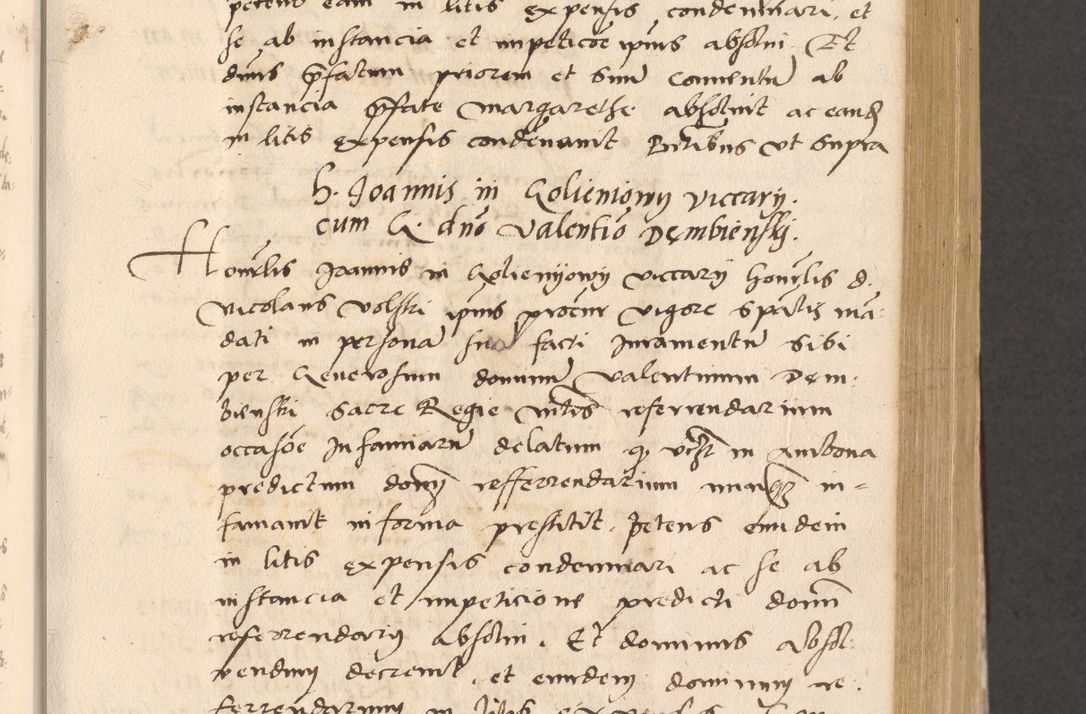 petens eam in litis expensis condemnari, et
se ab instancia et impeticōe ipius absolui. Et
dnus p̄fatum priorem et suū conuentū ab
instancia p̄fate Margarethe absoluit ac eand
in litis expensis condēnauit pntibus ut supra
h. Joannis in Golieniowy viccarij.
cum G. dnō Valentiō Dembienskj.
Honrlis Joannis in Golieniowy viccarij honrlis d.
Nicolaus Volski ipius procur vigore spālis man
dati in persona sua facti Juramentū sibi
per Generosum dominū Valentinum Dem
bienski Sacre Regie mtis referrendarium
occasōe Infamiarū delatum q in ambona
predictum domī refferrendarium in=
famauit in forma prestitit. Petens eundem
in litis expensis condemnari ac se ab
instancia et impeticione predicti domī
referrendarij absolui. Et dominus absol
uendum decreuit, et eundem dominum re
ferrendarium in litis expensis